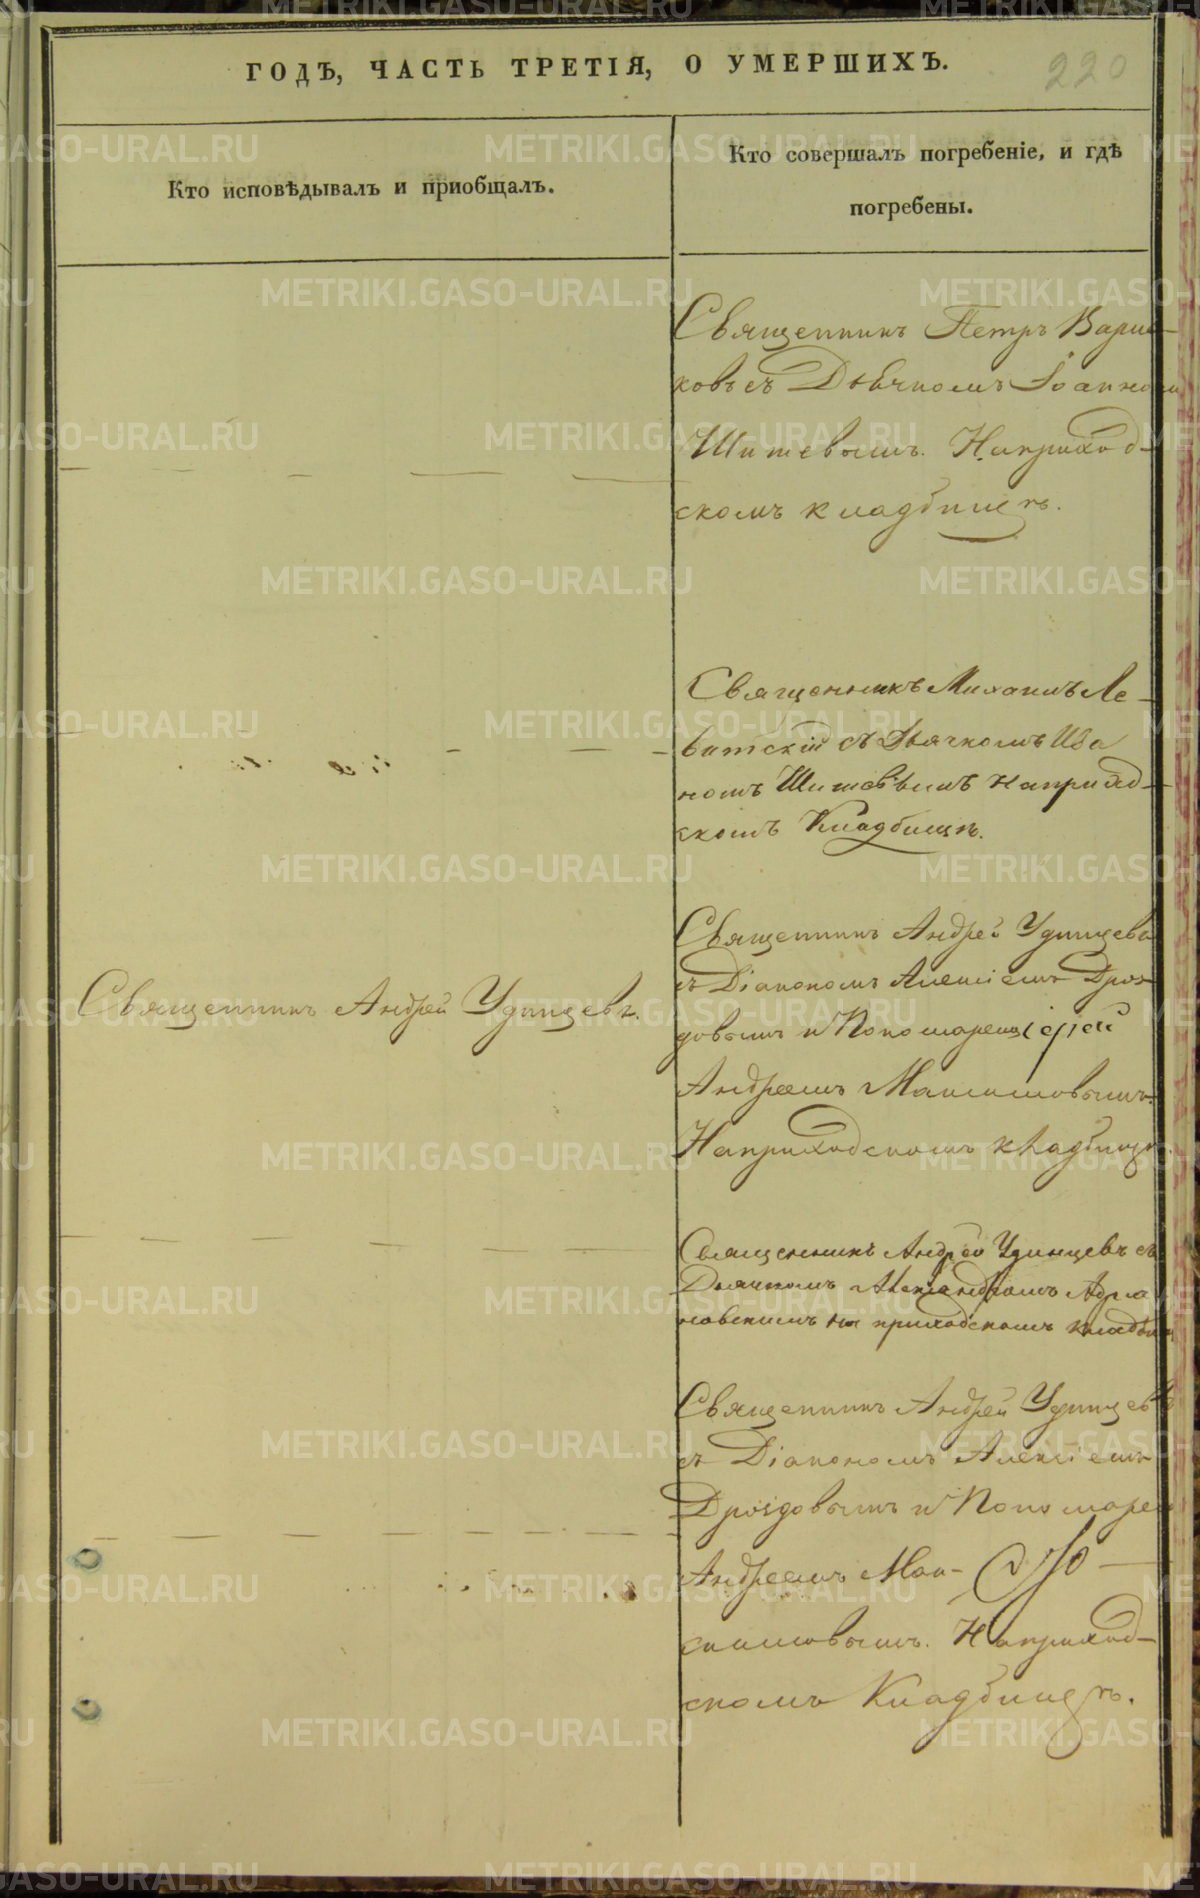 ГОДѢ, ЧАСТЬ ТРЕТІЯ, О УМЕРШИХЪ.
220
Кто исповѣдывалъ и приобщалъ.
Кто совершалъ погребеніе, и гдѣ
погребены.
Священникъ Петръ
ковъ съ Дьячкомъ Іоанномъ
Шитевымъ. На приход-
скомъ кладбищѣ.
Священникъ Михаилъ Ле-
витскій съ Дьячкомъ Ива
номъ Шитевымъ на приход-
скомъ Кладбищѣ.
Священникъ Андрей Удинцевъ
съ Діакономъ Алексіемъ Дроз-
довымъ и Пономаремъ
Андреемъ Максимовымъ.
На приходскомъ кладбищѣ.
Священникъ Андрей Удинцевъ.
Священникъ Андрей Удинцевъ съ
Дьячкомъ Александромъ Адріа
новскимъ на приходскомъ кладбищѣ
Священникъ Андрей Удинцевъ
съ Діакономъ Алексіемъ
Дроздовымъ и Пономаремъ
Андреемъ Мак-
симовымъ. На приход-
скомъ Кладбищѣ.
METRIKI.GASO-URAL.RU